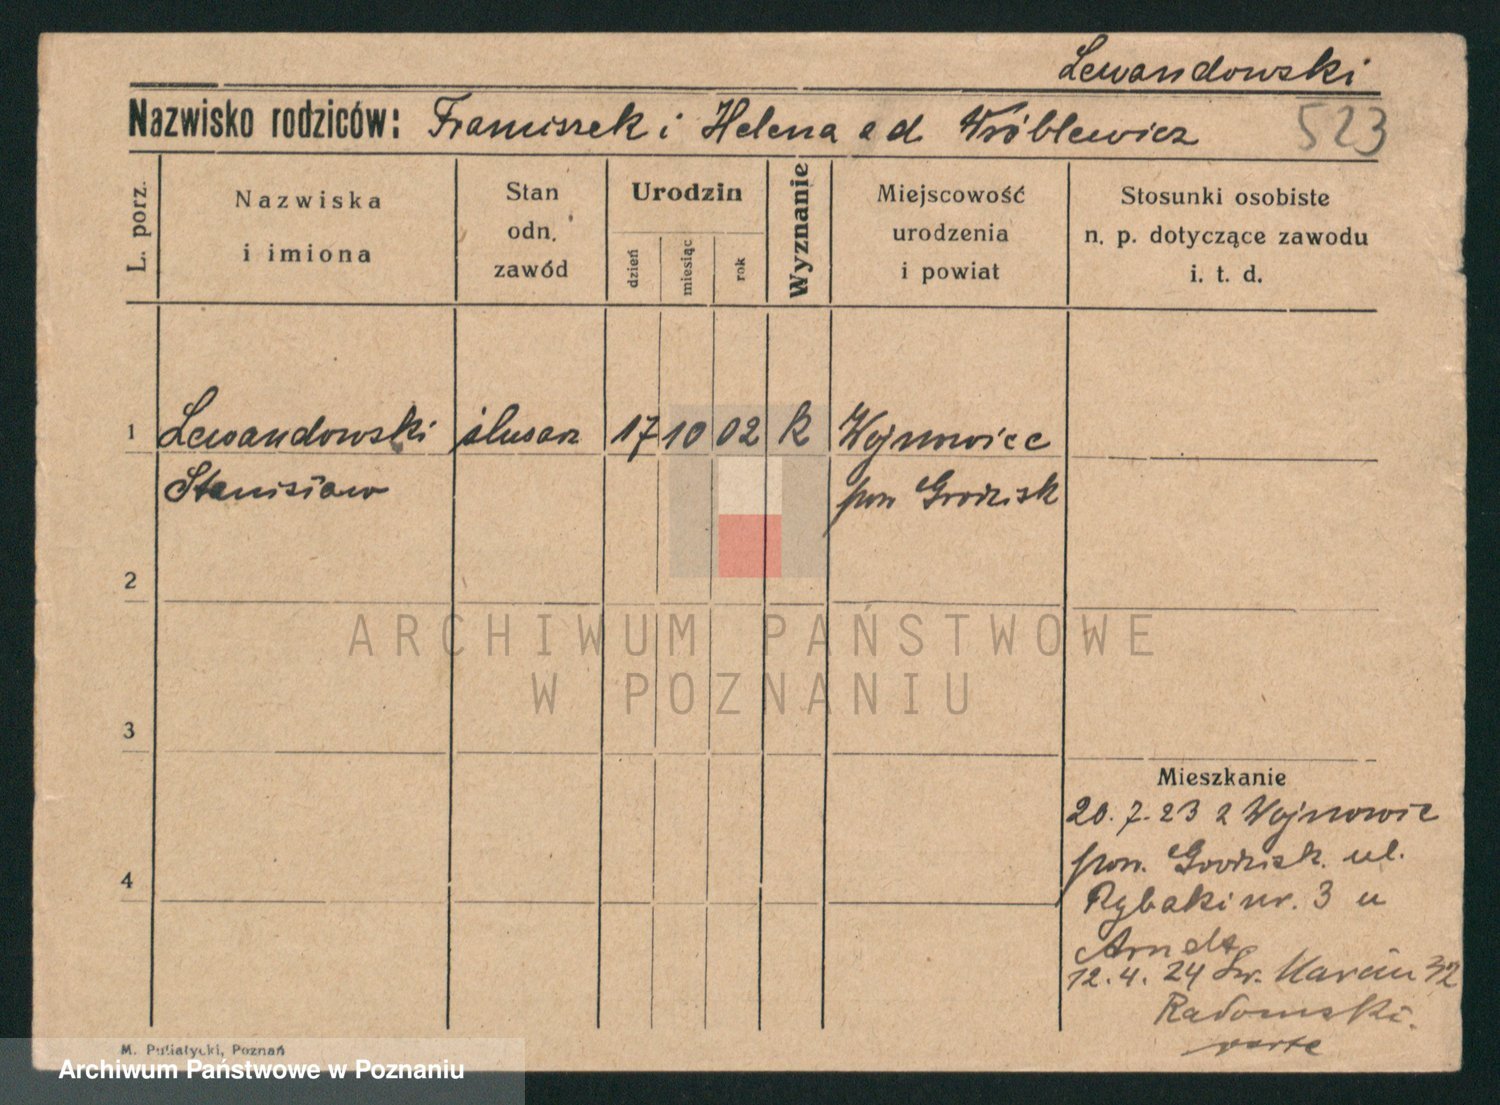 Lewandowski
Nazwisko rodziców: Franciszek i Helena ad Wróblewicz 523
L. porz.
Nazwiska
i imiona
Stan
odn.
zawód
Urodzin
dzień
miesiąc
rok
Wyznanie
Miejscowość
urodzenia
i powiat
Stosunki osobiste
n. p. dotyczące zawodu
i. t. d.
1 Lewandowski ślusarz 17 10 02 k Wojnowice
Stanisław pow Grodzisk
2
ARCHIWUM PAŃSTWOWE
W POZNANIU
3
Mieszkanie
20. 7. 23 z Wojnowic
pow. Grodzisk. ul.
4
Rybaki nr. 3 u
Arndt
12. 4. 24 Św. Marcin 32
Radomski.
verte
M. Putiatycki, Poznań
Archiwum Państwowe w Poznaniu